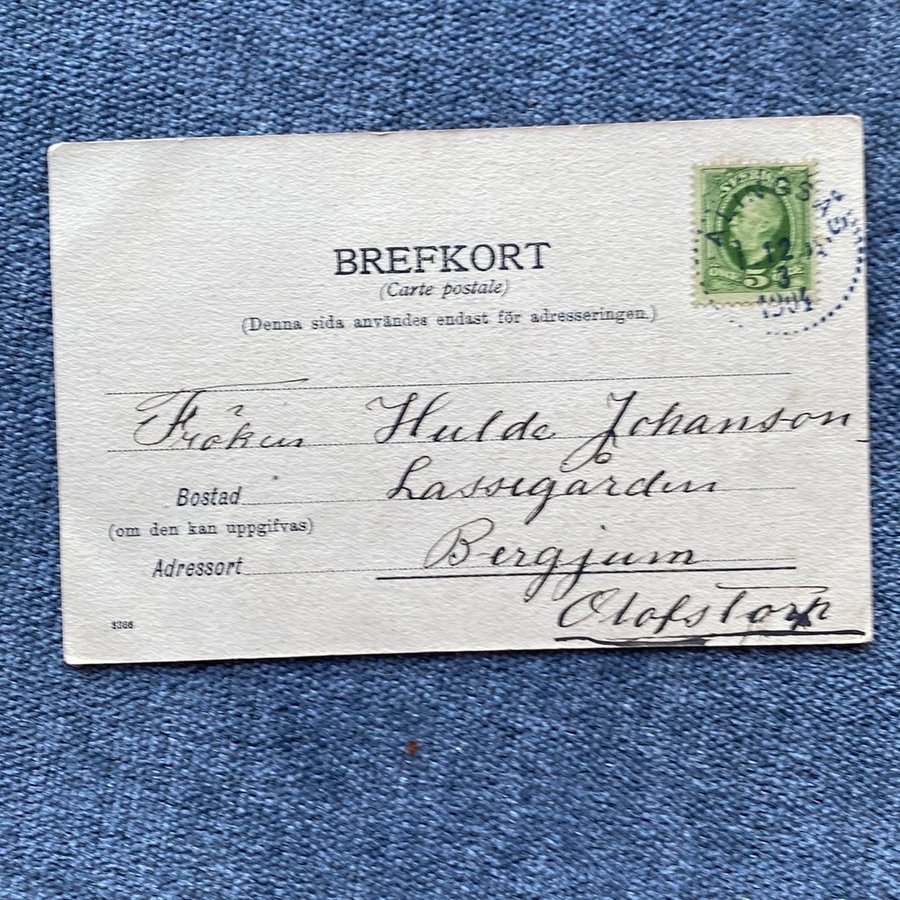 BREFKORT
(Carte postale)
(Denna sida användes endast för adresseringen.)
SVERIGE
5
ALINGSÅS
12
3
1904
Fröken Hulda Johanson
Bostad Lassegården
(om den kan uppgifvas)
Adressort Bergjum
Olofstorp
3366